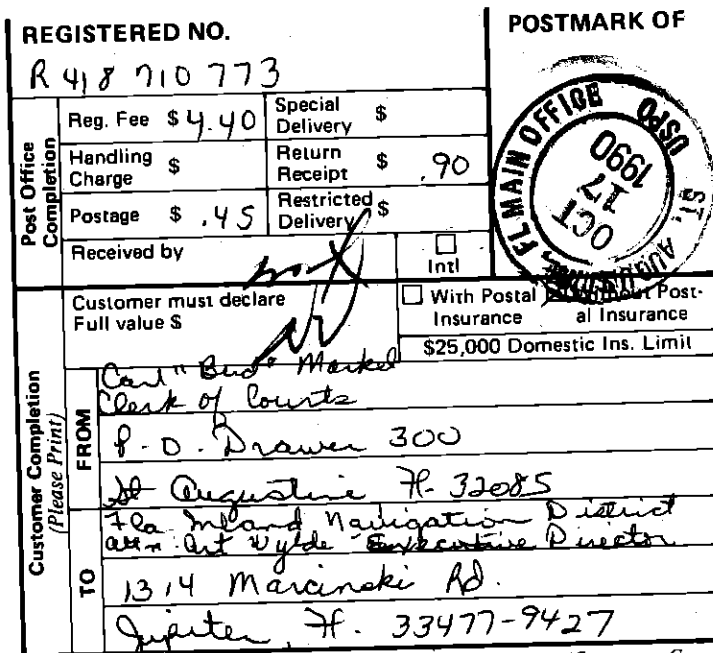 REGISTERED NO.
POSTMARK OF
R 418 710 773
Post Office Completion
Reg. Fee $ 4.40
Special Delivery $
Handling Charge $
Return Receipt $ .90
Postage $ .45
Restricted Delivery $
Received by
Intl
ST. AUGUSTINE, FL MAIN OFFICE USPO
OCT 17 1990
Customer must declare Full value $
With Postal Insurance
Without Postal Insurance
$25,000 Domestic Ins. Limit
Customer Completion (Please Print)
FROM
Carl "Bud" Markel
Clerk of Courts
P.O. Drawer 300
St Augustine Fl. 32085
TO
Fla Inland Navigation District
Attn: Art Wylde Executive Director
1314 Marcinski Rd.
Jupiter, Fl. 33477-9427